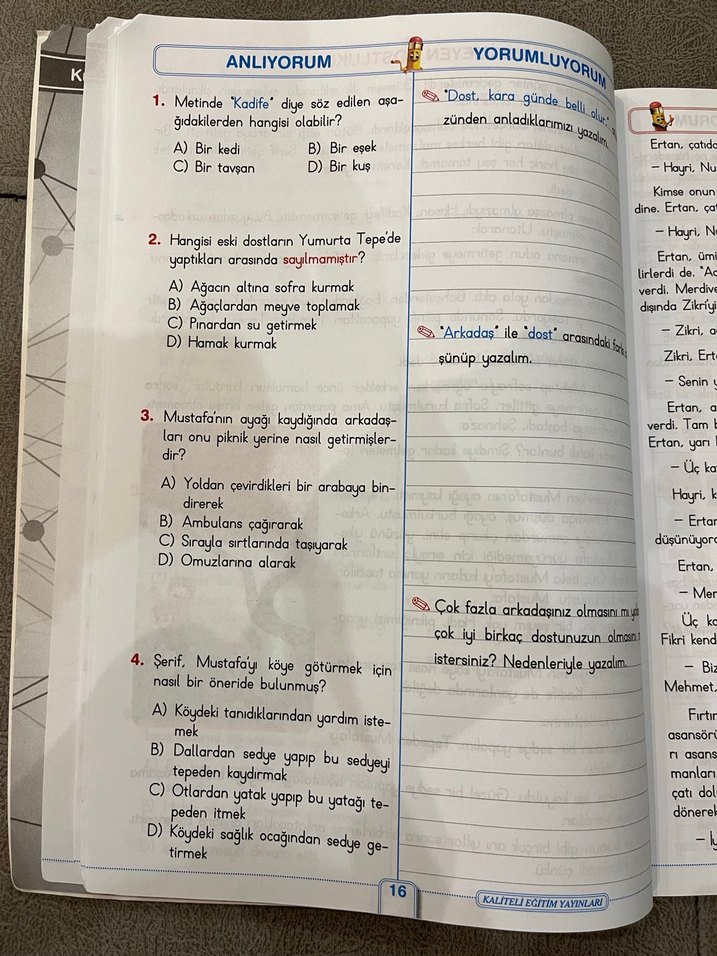 ANLIYORUM
1. Metinde "Kadife" diye söz edilen aşa-
ğıdakilerden hangisi olabilir?
A) Bir kedi
B) Bir eşek
C) Bir tavşan
D) Bir kuş
2. Hangisi eski dostların Yumurta Tepe'de
yaptıkları arasında sayılmamıştır?
A) Ağacın altına sofra kurmak
B) Ağaçlardan meyve toplamak
C) Pınardan su getirmek
D) Hamak kurmak
3. Mustafa'nın ayağı kaydığında arkadaş-
ları onu piknik yerine nasıl getirmişler-
dir?
A) Yoldan çevirdikleri bir arabaya bin-
direrek
B) Ambulans çağırarak
C) Sırayla sırtlarında taşıyarak
D) Omuzlarına alarak
4. Şerif, Mustafa'yı köye götürmek için
nasıl bir öneride bulunmuş?
A) Köydeki tanıdıklarından yardım iste-
mek
B) Dallardan sedye yapıp bu sedyeyi
tepeden kaydırmak
C) Otlardan yatak yapıp bu yatağı te-
peden itmek
D) Köydeki sağlık ocağından sedye ge-
tirmek
YORUMLUYORUM
"Dost, kara günde belli olur."
zünden anladıklarımızı yazalım.
"Arkadaş" ile "dost" arasındaki
şünüp yazalım.
Çok fazla arkadaşınız olmasını mı
çok iyi birkaç dostunuzun olmasını
istersiniz? Nedenleriyle yazalım.
16
KALİTELİ EĞİTİM YAYINLARI
Ertan, çatıda
– Hayri, Nu
Kimse onun
dine. Ertan, çat
– Hayri, Nu
Ertan, ümi
lirlerdi de. "Ac
verdi. Merdive
dışında Zikri'yi
– Zikri, a
Zikri, Ert
– Senin y
Ertan, a
verdi. Tam b
Ertan, yarı
– Üç ka
Hayri, k
– Ertan
düşünüyor
Ertan,
– Mer
Üç ka
Fikri kend
– Biz
Mehmet,
Fırtır
asansörü
rı asans
manları
çatı dol
dönerek
– İy